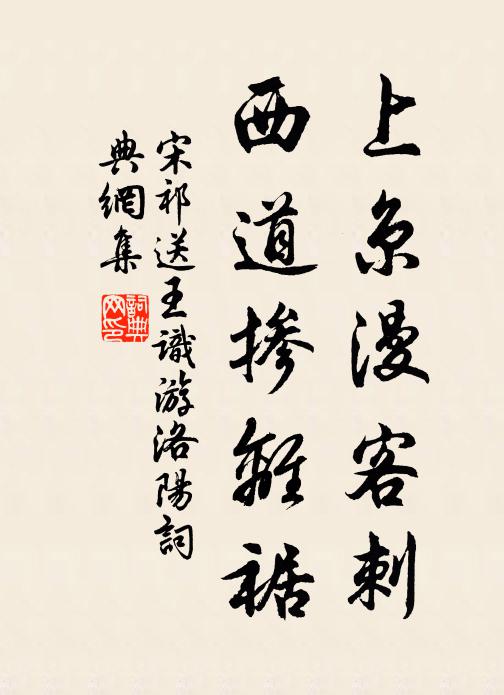 上京漫客刺
西道掺離裾
宋祁送王識游洛陽詞
典網集
詞典网印